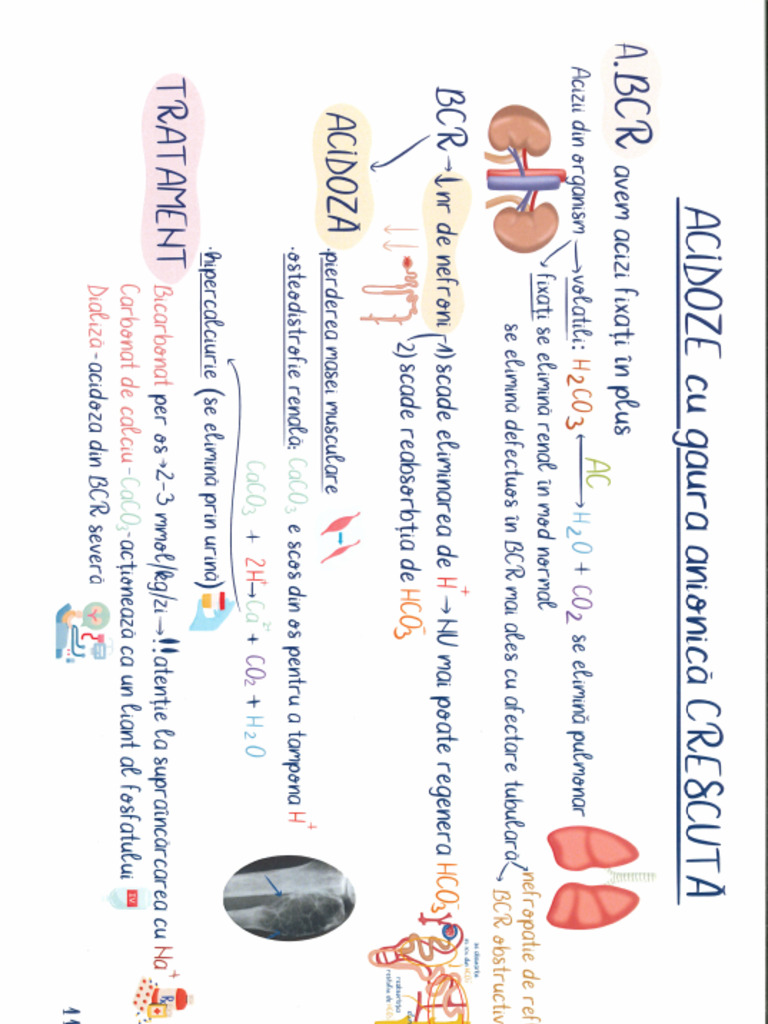 ACIDOZE cu gaura anionică CRESCUTĂ
A. BCR avem acizi fixați în plus
Acizii din organism → volatili: H2CO3 ←AC→ H2O + CO2 se elimină pulmonar
fixați se elimină renal în mod normal
se elimină defectuos în BCR mai ales cu afectare tubulară
nefropatie de ref
BCR obstructiv
BCR → ↓ nr de nefroni 1) scade eliminarea de H+ → NU mai poate regenera HCO3-
2) scade reabsorbția de HCO3-
ACIDOZĂ
·pierderea masei musculare
·osteodistrofie renală: CaCO3 e scos din os pentru a tampona H+
CaCO3 + 2H+ → Ca2+ + CO2 + H2O
·hipercalciurie (se elimină prin urină)
TRATAMENT
Bicarbonat per os → 2-3 mmol/kg/zi → !! atenție la supraîncărcarea cu Na+
Carbonat de calciu - CaCO3 - acționează ca un liant al fosfatului
Dializă - acidoza din BCR severă
IV
11